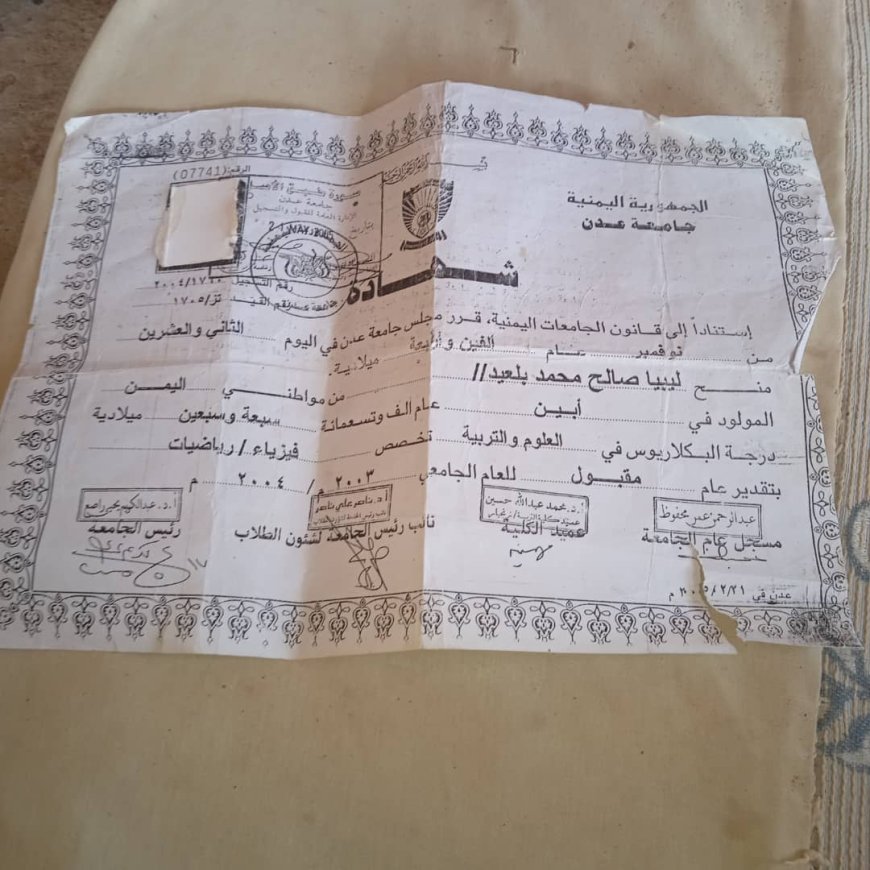 الجمهورية اليمنية
جامعة عدن
الرقم: (07741)
صورة طبق الأصل
جامعة عدن
الإدارة العامة للقبول والتسجيل
شهادة
رقم التسجيل ٢٠٠٤/١٧١٠
رقم القيد تز/١٧٠٥
إستناداً إلى قانون الجامعات اليمنية، قرر مجلس جامعة عدن في اليوم الثاني والعشرين
من نوفمبر عام الفين وأربعة ميلادية
منح ليبيا صالح محمد بلعيد// من مواطني اليمن
المولود في أبين عام الف وتسعمائة سبعة وسبعين ميلادية
درجة البكلاريوس في العلوم والتربية تخصص فيزياء/رياضيات
بتقدير عام مقبول للعام الجامعي ٢٠٠٣ م/ ٢٠٠٤ م
عبدالرحمن عمر محفوظ
مسجل عام الجامعة
أ.د. محمد عبدالله حسين
عميد الكلية
أ.د. ناصر علي ناصر
نائب رئيس الجامعة لشئون الطلاب
أ.د. عبدالكريم يحيى راصع
رئيس الجامعة
عدن في ٢٠٠٥/٢/٢١ م